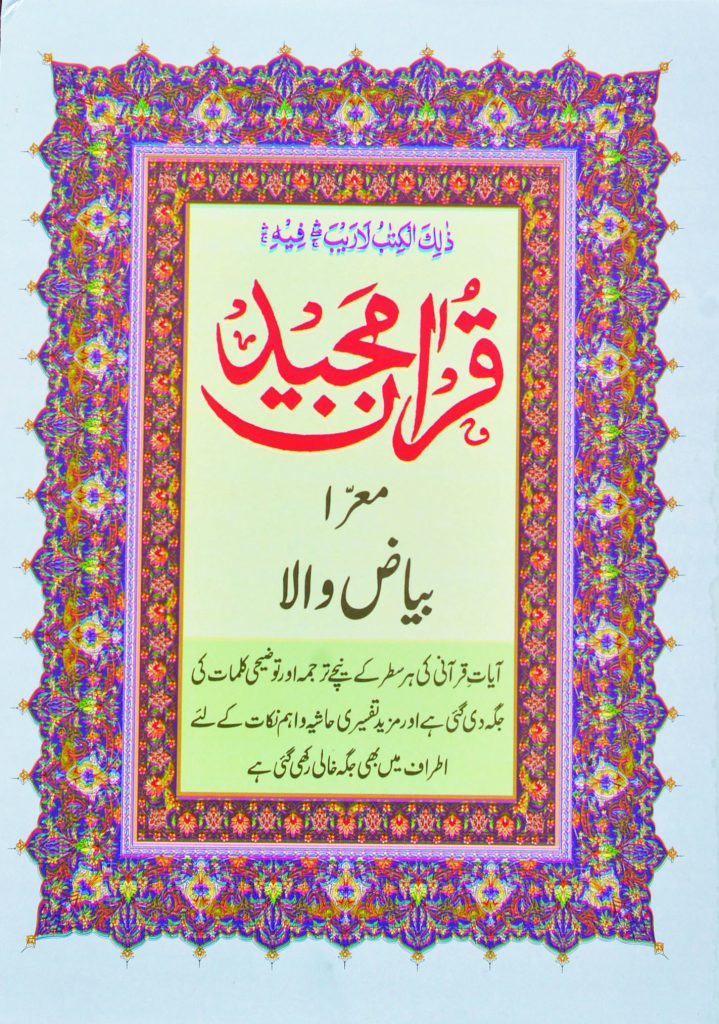 ذٰلِكَ الْكِتٰبُ لَا رَیْبَ ۛۖ فِیْهِ ۛۚ
قُرْاٰن مجید
معرّا
بیاض والا
آیاتِ قرآنی کی ہر سطر کے نیچے ترجمہ اور توضیحی کلمات کی
جگہ دی گئی ہے اور مزید تفسیری حاشیہ و اہم نکات کے لئے
اطراف میں بھی جگہ خالی رکھی گئی ہے